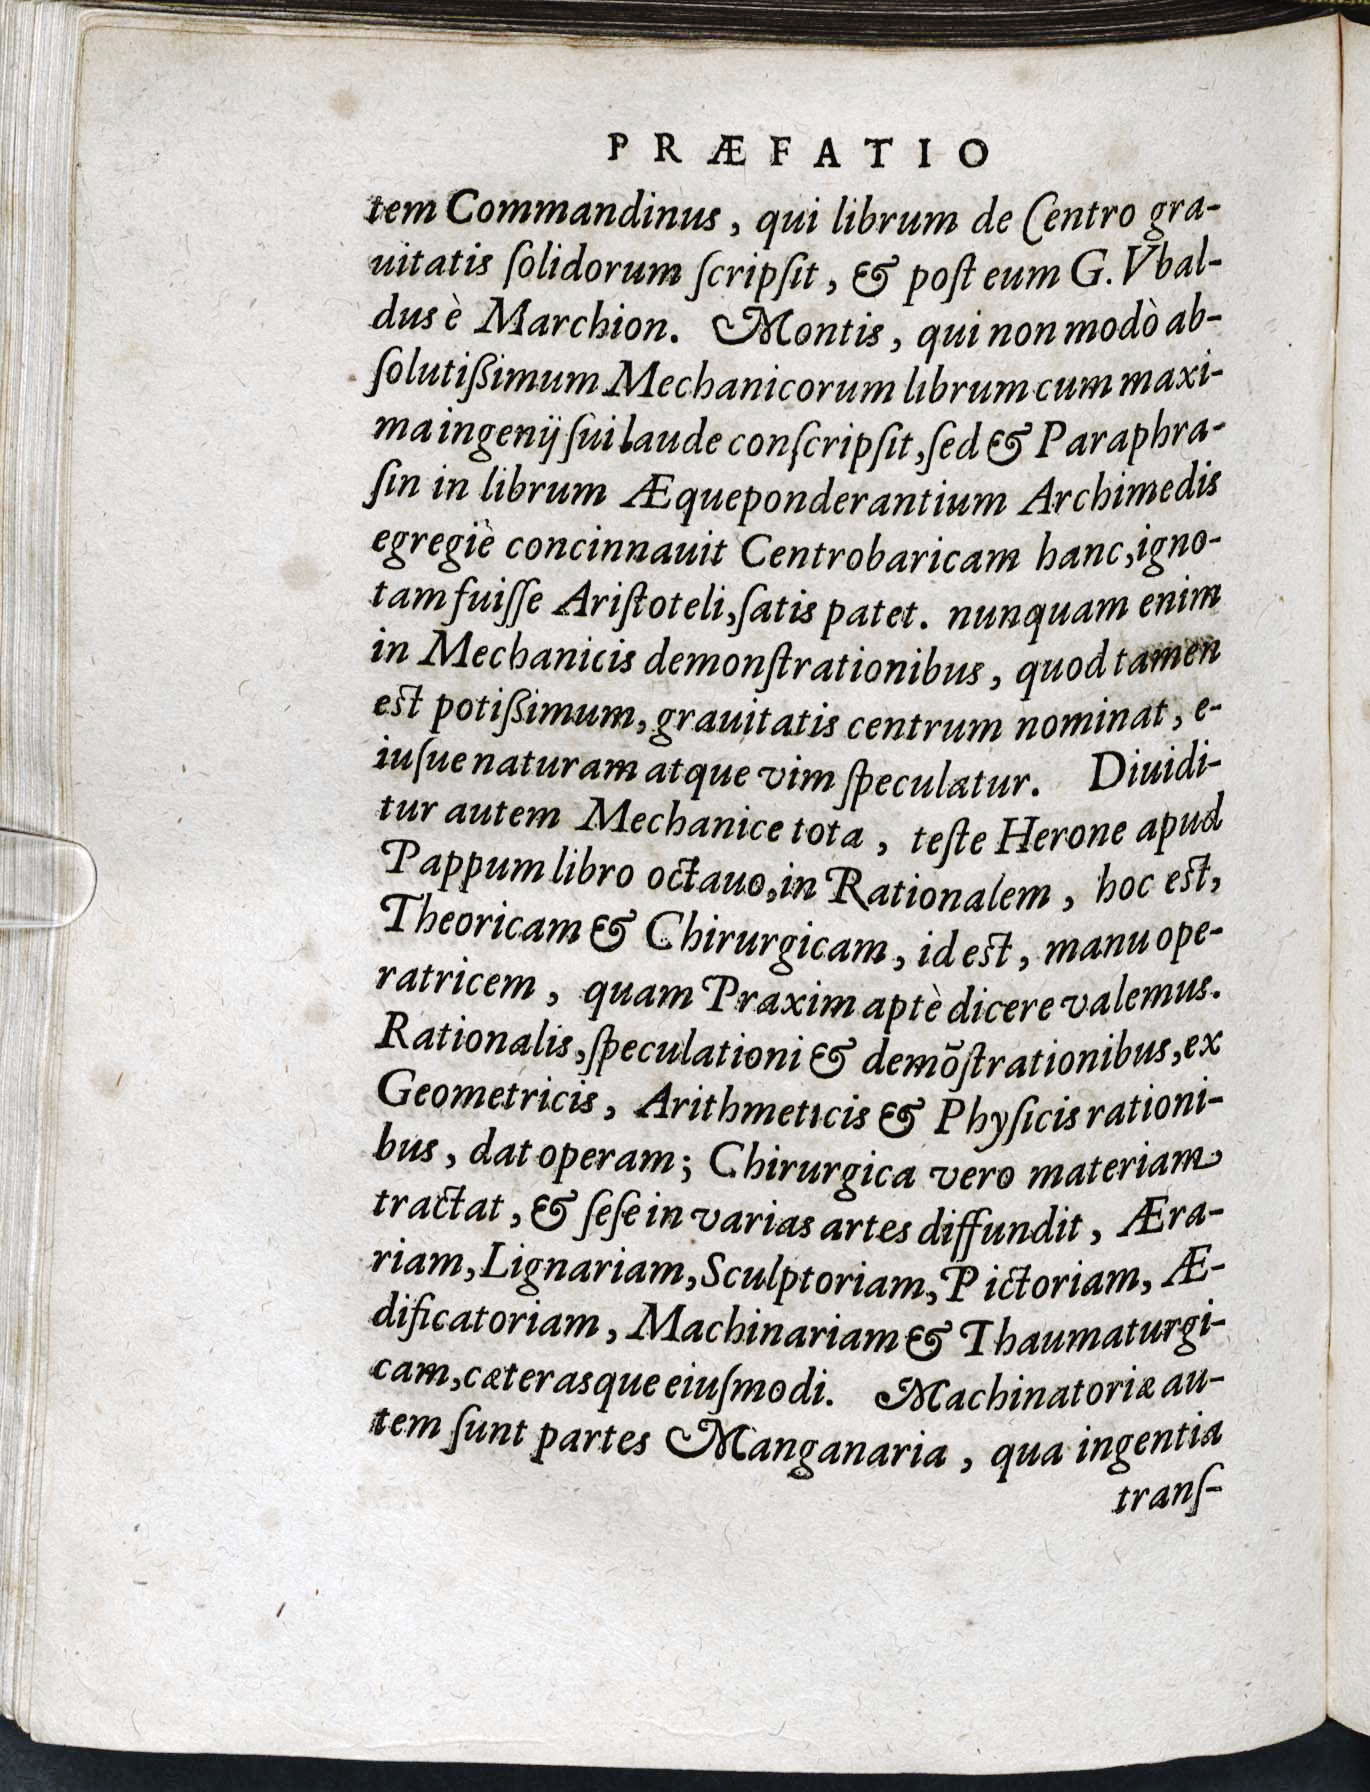 PRÆFATIO
tem Commandinus, qui librum de Centro gra-
uitatis ſolidorum ſcripſit, & poſt eum G. Vbal-
dus è Marchion. Montis, qui non modò ab-
ſolutiſſimum Mechanicorum librum cum maxi-
ma ingenij ſui laude conſcripſit, ſed & Paraphra-
ſin in librum Æqueponderantium Archimedis
egregiè concinnauit Centrobaricam hanc, igno-
tam fuiſſe Ariſtoteli, ſatis patet. nunquam enim
in Mechanicis demonſtrationibus, quod tamen
eſt potiſſimum, grauitatis centrum nominat, e-
iuſue naturam atque vim ſpeculatur. Diuidi-
tur autem Mechanice tota, teſte Herone apud
Pappum libro octauo, in Rationalem, hoc eſt,
Theoricam & Chirurgicam, id eſt, manu ope-
ratricem, quam Praxim aptè dicere valemus.
Rationalis, ſpeculationi & demõſtrationibus, ex
Geometricis, Arithmeticis & Phyſicis rationi-
bus, dat operam; Chirurgica vero materiam
tractat, & ſeſe in varias artes diffundit, Æra-
riam, Lignariam, Sculptoriam, Pictoriam, Æ-
dificatoriam, Machinariam & Thaumaturgi-
cam, cæterasque eiuſmodi. Machinatoriæ au-
tem ſunt partes Manganaria, qua ingentia
tranſ-